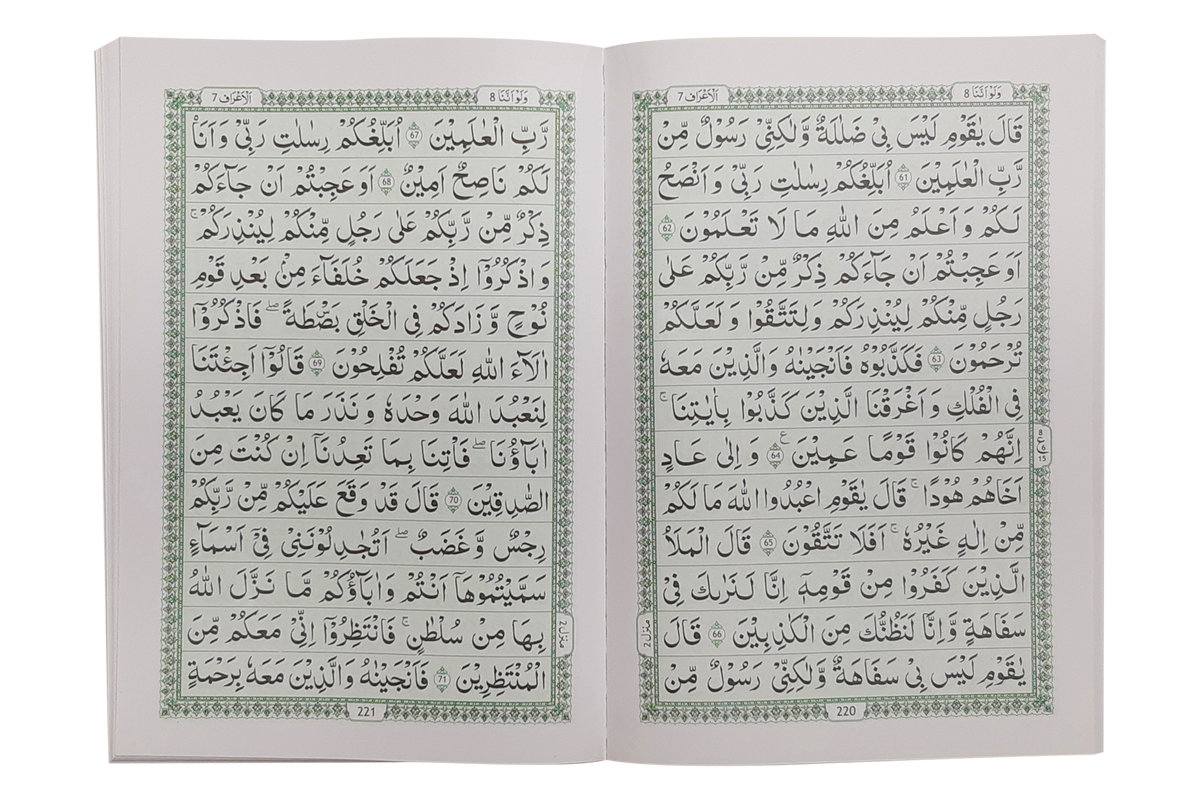 وَلَوْ اَنَّنَا 8
اَلْاَعْرَاف 7
قَالَ يٰقَوْمِ لَيْسَ بِيْ ضَلٰلَةٌ وَّلٰكِنِّيْ رَسُوْلٌ مِّنْ
رَّبِّ الْعٰلَمِيْنَ 61 اُبَلِّغُكُمْ رِسٰلٰتِ رَبِّيْ وَاَنْصَحُ
لَكُمْ وَاَعْلَمُ مِنَ اللّٰهِ مَا لَا تَعْلَمُوْنَ 62
اَوَعَجِبْتُمْ اَنْ جَآءَكُمْ ذِكْرٌ مِّنْ رَّبِّكُمْ عَلٰى
رَجُلٍ مِّنْكُمْ لِيُنْذِرَكُمْ وَلِتَتَّقُوْا وَلَعَلَّكُمْ
تُرْحَمُوْنَ 63 فَكَذَّبُوْهُ فَاَنْجَيْنٰهُ وَالَّذِيْنَ مَعَهٗ
فِي الْفُلْكِ وَاَغْرَقْنَا الَّذِيْنَ كَذَّبُوْا بِاٰيٰتِنَا ۚ
اِنَّهُمْ كَانُوْا قَوْمًا عَمِيْنَ 64 ع وَاِلٰى عَادٍ
اَخَاهُمْ هُوْدًا ۚ قَالَ يٰقَوْمِ اعْبُدُوا اللّٰهَ مَا لَكُمْ
مِّنْ اِلٰهٍ غَيْرُهٗ ۚ اَفَلَا تَتَّقُوْنَ 65 قَالَ الْمَلَاُ
الَّذِيْنَ كَفَرُوْا مِنْ قَوْمِهٖٓ اِنَّا لَنَرٰىكَ فِيْ
سَفَاهَةٍ وَّاِنَّا لَنَظُنُّكَ مِنَ الْكٰذِبِيْنَ 66 قَالَ
يٰقَوْمِ لَيْسَ بِيْ سَفَاهَةٌ وَّلٰكِنِّيْ رَسُوْلٌ مِّنْ
8
ع
6
15
منزل 2
220
وَلَوْ اَنَّنَا 8
اَلْاَعْرَاف 7
رَّبِّ الْعٰلَمِيْنَ 67 اُبَلِّغُكُمْ رِسٰلٰتِ رَبِّيْ وَاَنَا
لَكُمْ نَاصِحٌ اَمِيْنٌ 68 اَوَعَجِبْتُمْ اَنْ جَآءَكُمْ
ذِكْرٌ مِّنْ رَّبِّكُمْ عَلٰى رَجُلٍ مِّنْكُمْ لِيُنْذِرَكُمْ ۚ
وَاذْكُرُوْٓا اِذْ جَعَلَكُمْ خُلَفَآءَ مِنْۢ بَعْدِ قَوْمِ
نُوْحٍ وَّزَادَكُمْ فِي الْخَلْقِ بَصْۜطَةً ۖ فَاذْكُرُوْٓا
اٰلَآءَ اللّٰهِ لَعَلَّكُمْ تُفْلِحُوْنَ 69 قَالُوْٓا اَجِئْتَنَا
لِنَعْبُدَ اللّٰهَ وَحْدَهٗ وَنَذَرَ مَا كَانَ يَعْبُدُ
اٰبَآؤُنَا ۖ فَاْتِنَا بِمَا تَعِدُنَآ اِنْ كُنْتَ مِنَ
الصّٰدِقِيْنَ 70 قَالَ قَدْ وَقَعَ عَلَيْكُمْ مِّنْ رَّبِّكُمْ
رِجْسٌ وَّغَضَبٌ ۖ اَتُجَادِلُوْنَنِيْ فِيْٓ اَسْمَآءٍ
سَمَّيْتُمُوْهَآ اَنْتُمْ وَاٰبَآؤُكُمْ مَّا نَزَّلَ اللّٰهُ
بِهَا مِنْ سُلْطٰنٍ ۚ فَانْتَظِرُوْٓا اِنِّيْ مَعَكُمْ مِّنَ
الْمُنْتَظِرِيْنَ 71 فَاَنْجَيْنٰهُ وَالَّذِيْنَ مَعَهٗ بِرَحْمَةٍ
منزل 2
221